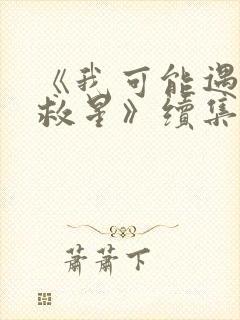 《我可能遇
救星》續集
蕭蕭下